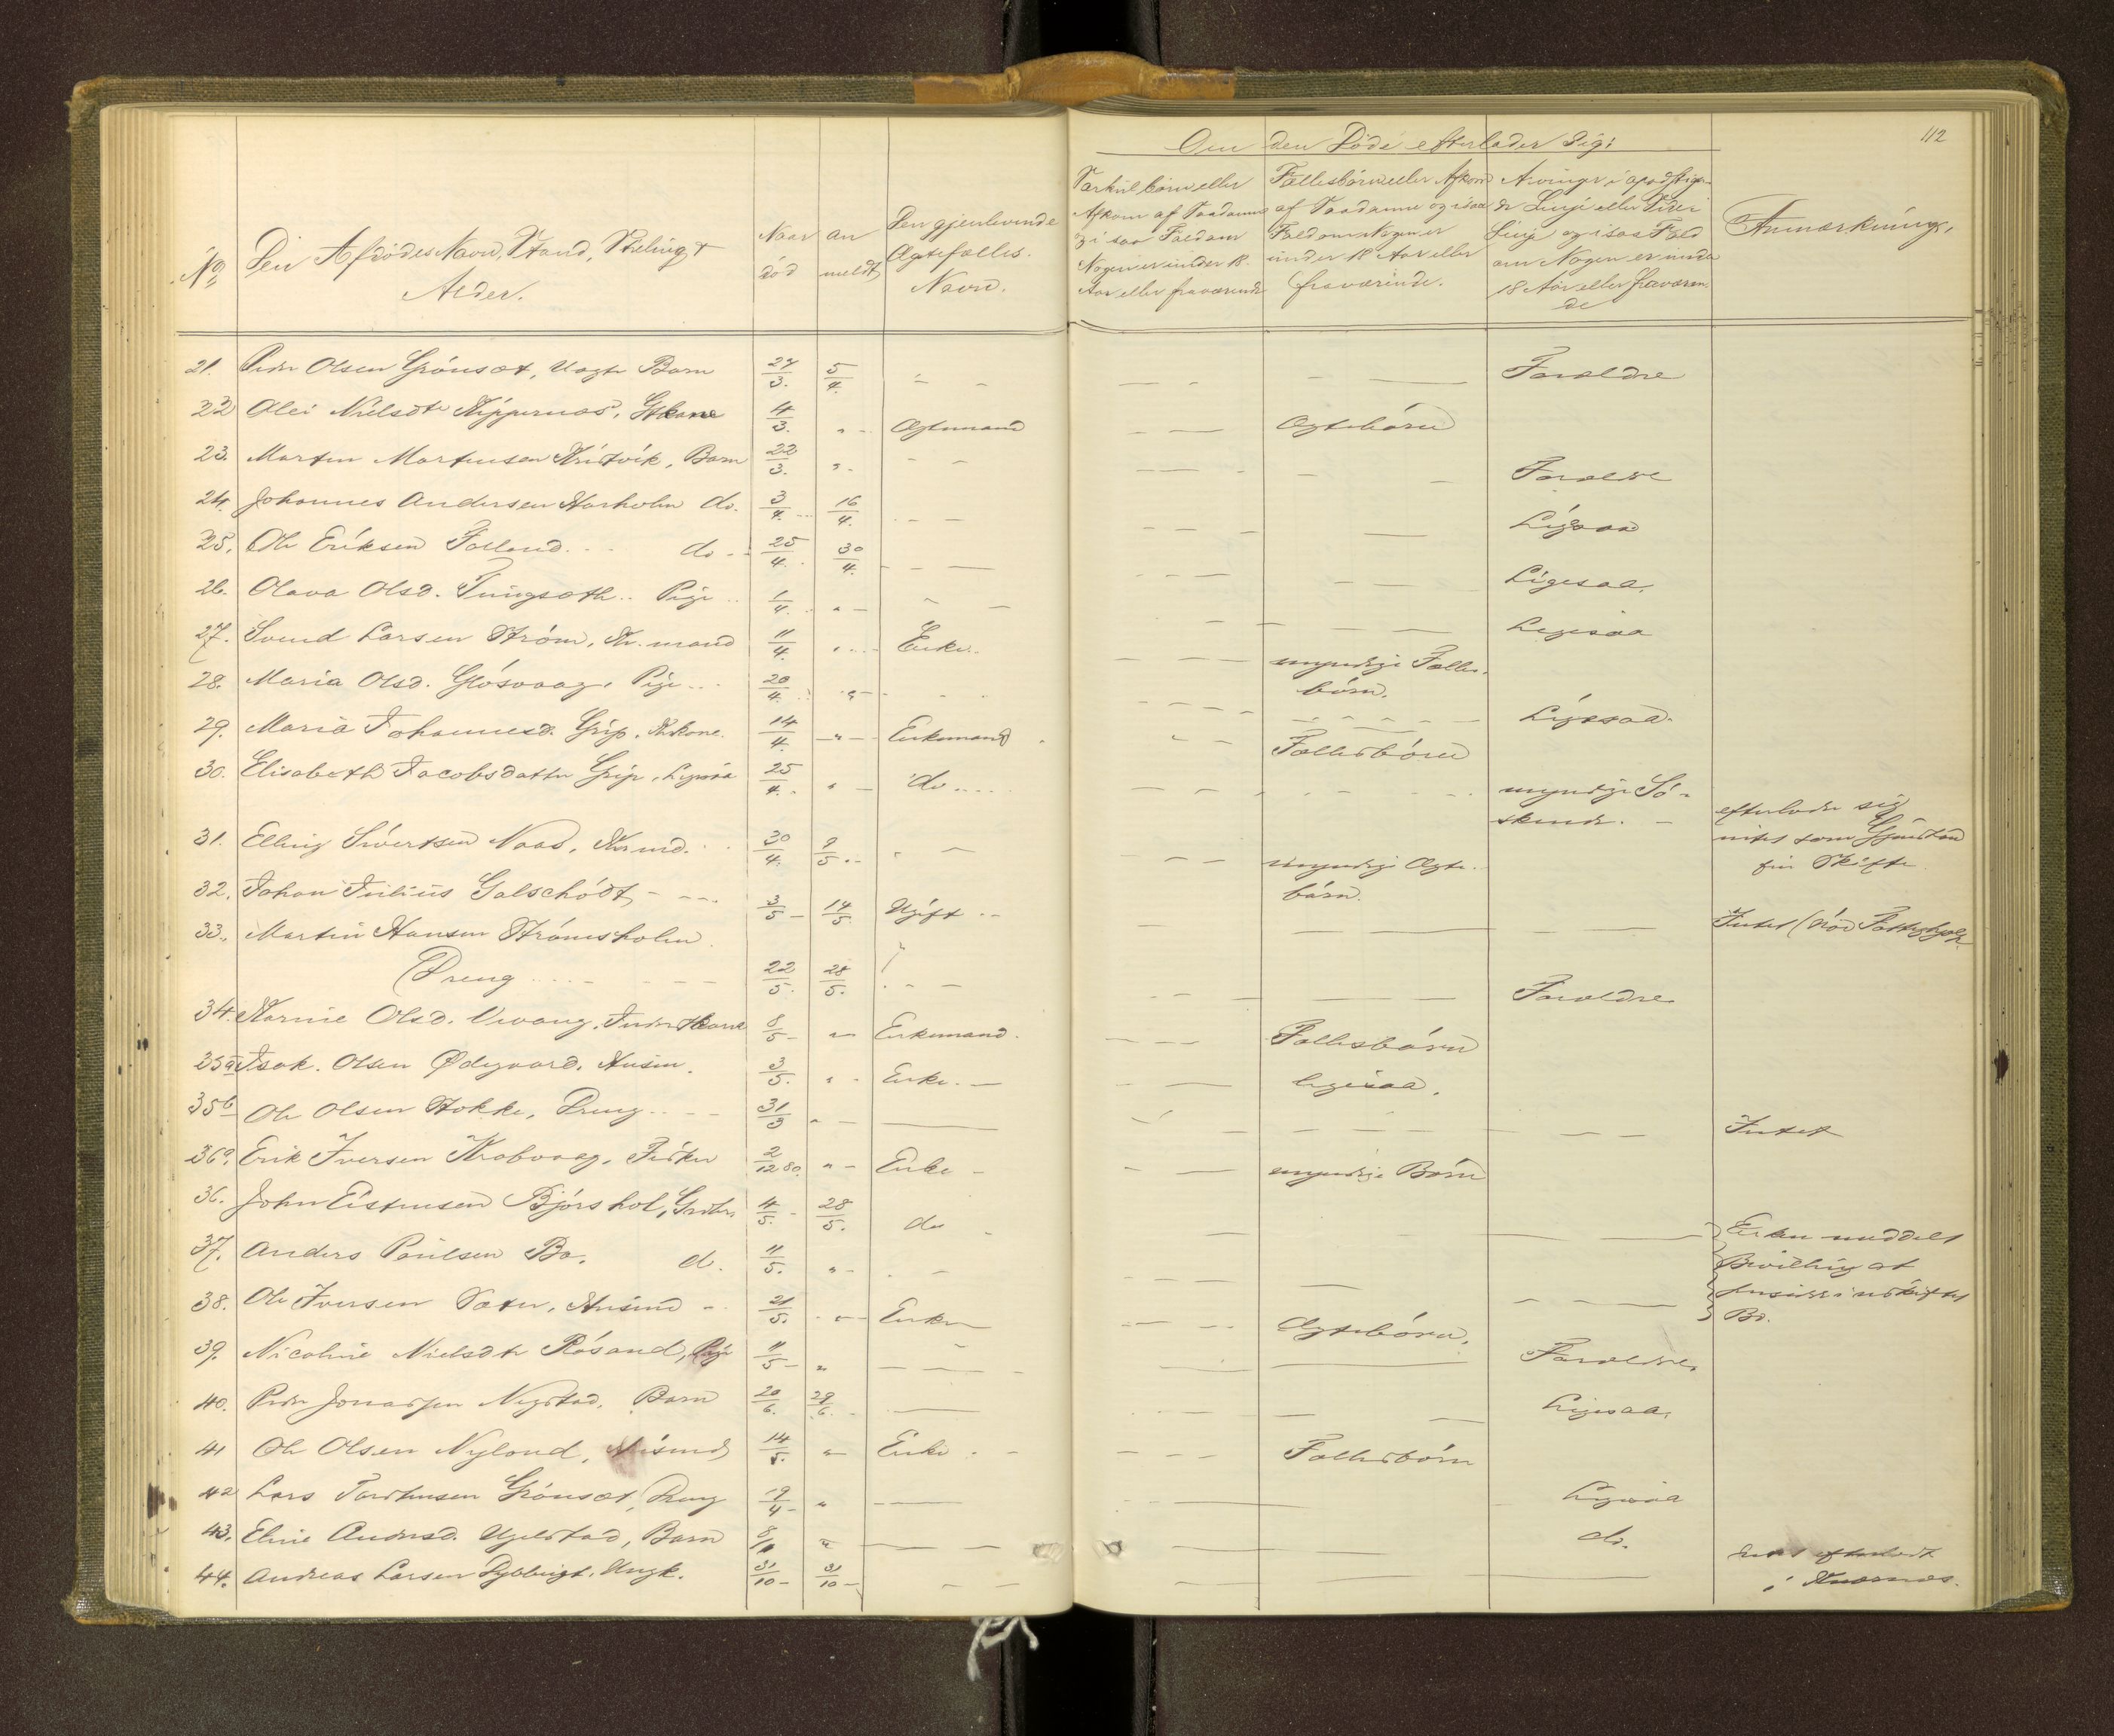 112
Om den Döde efterlader sig:
No
Den Afdödes Navn, Stand, Stilling &
Alder.
Naar död
anmeldt
Den gjenlevende
Ægtefælles
Navn.
Særkulbörn eller
Afkom af Saadanne
og i saa Fald om
Nogen er under 18
Aar eller fraværende
Fællesbörn eller Afkom
af Saadanne og i saa
Fald om Nogen er
under 18 Aar eller
fraværende.
Arvinger i opadstigen-
de Linje eller Side-
Linje og i saa Fald
om Nogen er under
18 Aar eller fraværen-
de
Anmærkning.
21. Peder Olsen Grönset, Barn 27/3. 5/4. Forældre
22 Olei Nielsdtr 4/3. " Ægtemand Ægtebörn
23. Martin Martinsen Kristvik, Barn 22/3. " Forældre
24. Johannes Andersen Storholm do. 3/4. 16/4. Ligesaa
25. Ole Eriksen Folland do 25/4. 30/4. Ligesaa.
26. Olava Olsd. Tingsæth Pige 1/4. " Ligesaa
27. Svend Larsen Ström, 11/4. " Enke myndige Fælles-
börn.
28. Maria Olsd. Glösvaag, Pige 20/4. " Ligesaa
29. Maria Johannesd. Grip, Kone 14/4. " Enkemand Fællesbörn
30. Elisabeth Jacobsdatter Grip, Ligesaa 25/4. " do myndige Sö-
skende. efterlader sig
intet som Gjenstand
for Skifte
31. Elling Sivertsen Naas, 30/4. 9/5. myndige Ægte-
börn.
32. Johan Julius Galschödt 3/5 14/5. Ugift Intet (nöd Fattighjelp
33. Martin Hansen Strömsholm
Dreng 22/5. 28/5. Forældre
34. Olsd. 8/5 " Enkemand. Fællesbörn
35a Isak Olsen Ödegaard. 3/5. " Enke ligesaa.
35b Ole Olsen Stokke, Dreng 31/3 " Intet
36a. Erik Iversen Krabvaag, Fisker 2/12 80. " Enke myndige Börn
36. John Eistensen Björshol, 4/5. 28/5. do Enken meddelt
Bevilling at
hensidde i uskiftet
Bo.
37. Anders Paulsen Bo. do. 11/5. "
38. Ole Iversen Sæter, 21/5. " Enke Ægtebörn.
39. Nicoline Nielsdtr Rösand, Pige 11/5 " Forældre.
40. Peder Jonassen Nygstad, Barn 20/6. 29/6. Ligesaa.
41 Ole Olsen Nyland, 14/5. " Enke Fællesbörn
42 Lars Torstensen Grönset, Dreng 19/4 " Ligesaa
43. Eline Andersd. Ugelstad, Barn 8/ " do.
44. Andreas Larsen Ungk. 31/10 31/10 efterladt
i